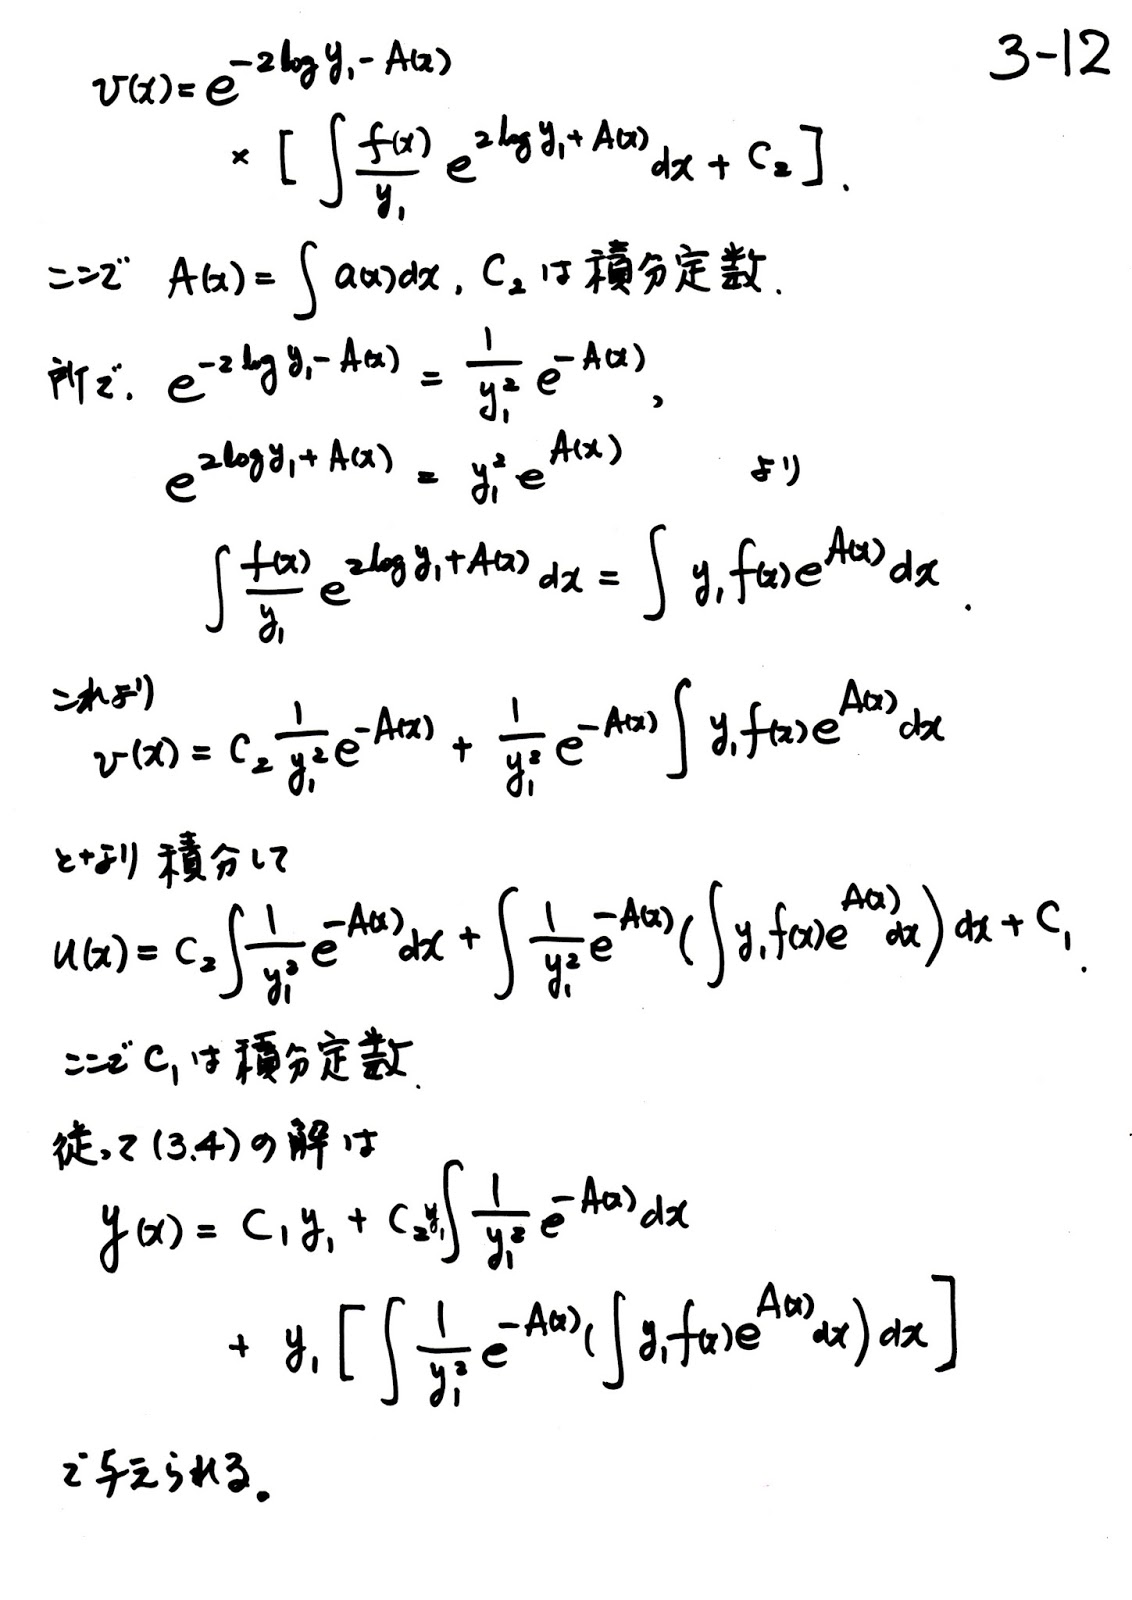 3-12
v(x) = e^{-2 log y₁ - A(x)}
× [ ∫ \frac{f(x)}{y₁} e^{2 log y₁ + A(x)} dx + C₂ ].
ここで A(x) = ∫ a(x)dx, C₂ は積分定数.
所で, e^{-2 log y₁ - A(x)} = \frac{1}{y₁²} e^{-A(x)},
e^{2 log y₁ + A(x)} = y₁² e^{A(x)} より
∫ \frac{f(x)}{y₁} e^{2 log y₁ + A(x)} dx = ∫ y₁ f(x) e^{A(x)} dx.
これより
v(x) = C₂ \frac{1}{y₁²} e^{-A(x)} + \frac{1}{y₁²} e^{-A(x)} ∫ y₁ f(x) e^{A(x)} dx
となり 積分して
u(x) = C₂ ∫ \frac{1}{y₁²} e^{-A(x)} dx + ∫ \frac{1}{y₁²} e^{-A(x)} ( ∫ y₁ f(x) e^{A(x)} dx ) dx + C₁.
ここで C₁ は積分定数.
従って (3.4) の解は
y(x) = C₁ y₁ + C₂ y₁ ∫ \frac{1}{y₁²} e^{-A(x)} dx
+ y₁ [ ∫ \frac{1}{y₁²} e^{-A(x)} ( ∫ y₁ f(x) e^{A(x)} dx ) dx ]
で与えられる。